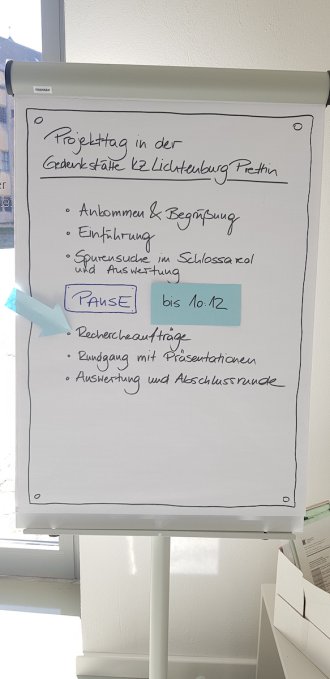 Projekttag in der
Gedenkstätte KZ Lichtenburg Prettin
• Ankommen & Begrüßung
• Einführung
• Spurensuche im Schlossareal
und Auswertung
PAUSE
bis 10:12
• Rechercheaufträge
• Rundgang mit Präsentationen
• Auswertung und Abschlussrunde